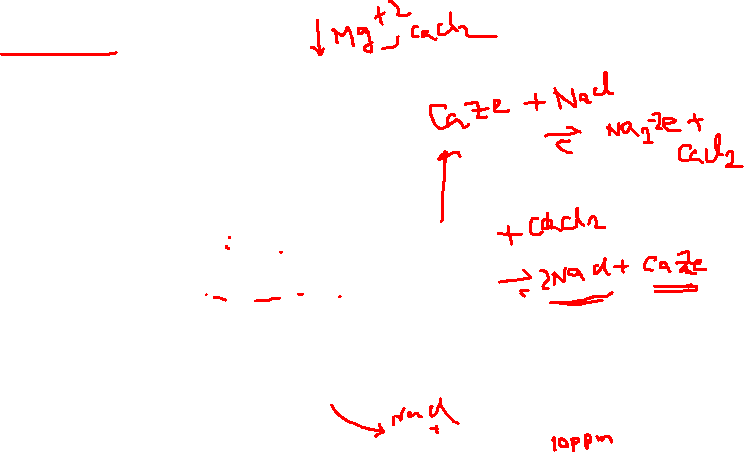 ↓ Mg+2, CaCl2
CaZe + NaCl
⇌ Na2Ze +
CaCl2
+ CaCl2
⇌ 2NaCl + CaZe
NaCl
+
10ppm